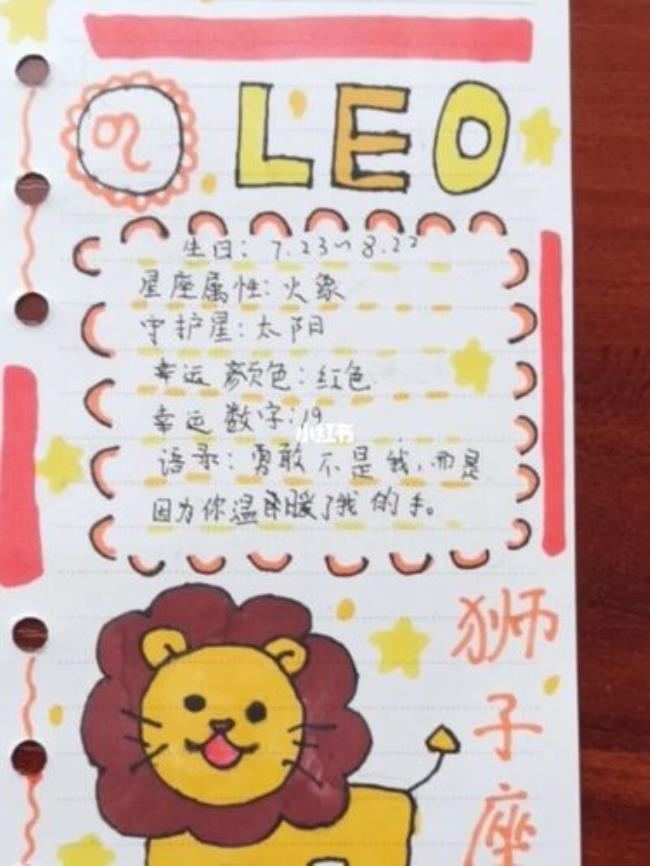 LEO
生日：7.23~8.22
星座属性：火象
守护星：太阳
幸运颜色：红色
幸运数字：19
小红书
语录：勇敢不是我，而是
因为你温暖了我的手。
狮子座